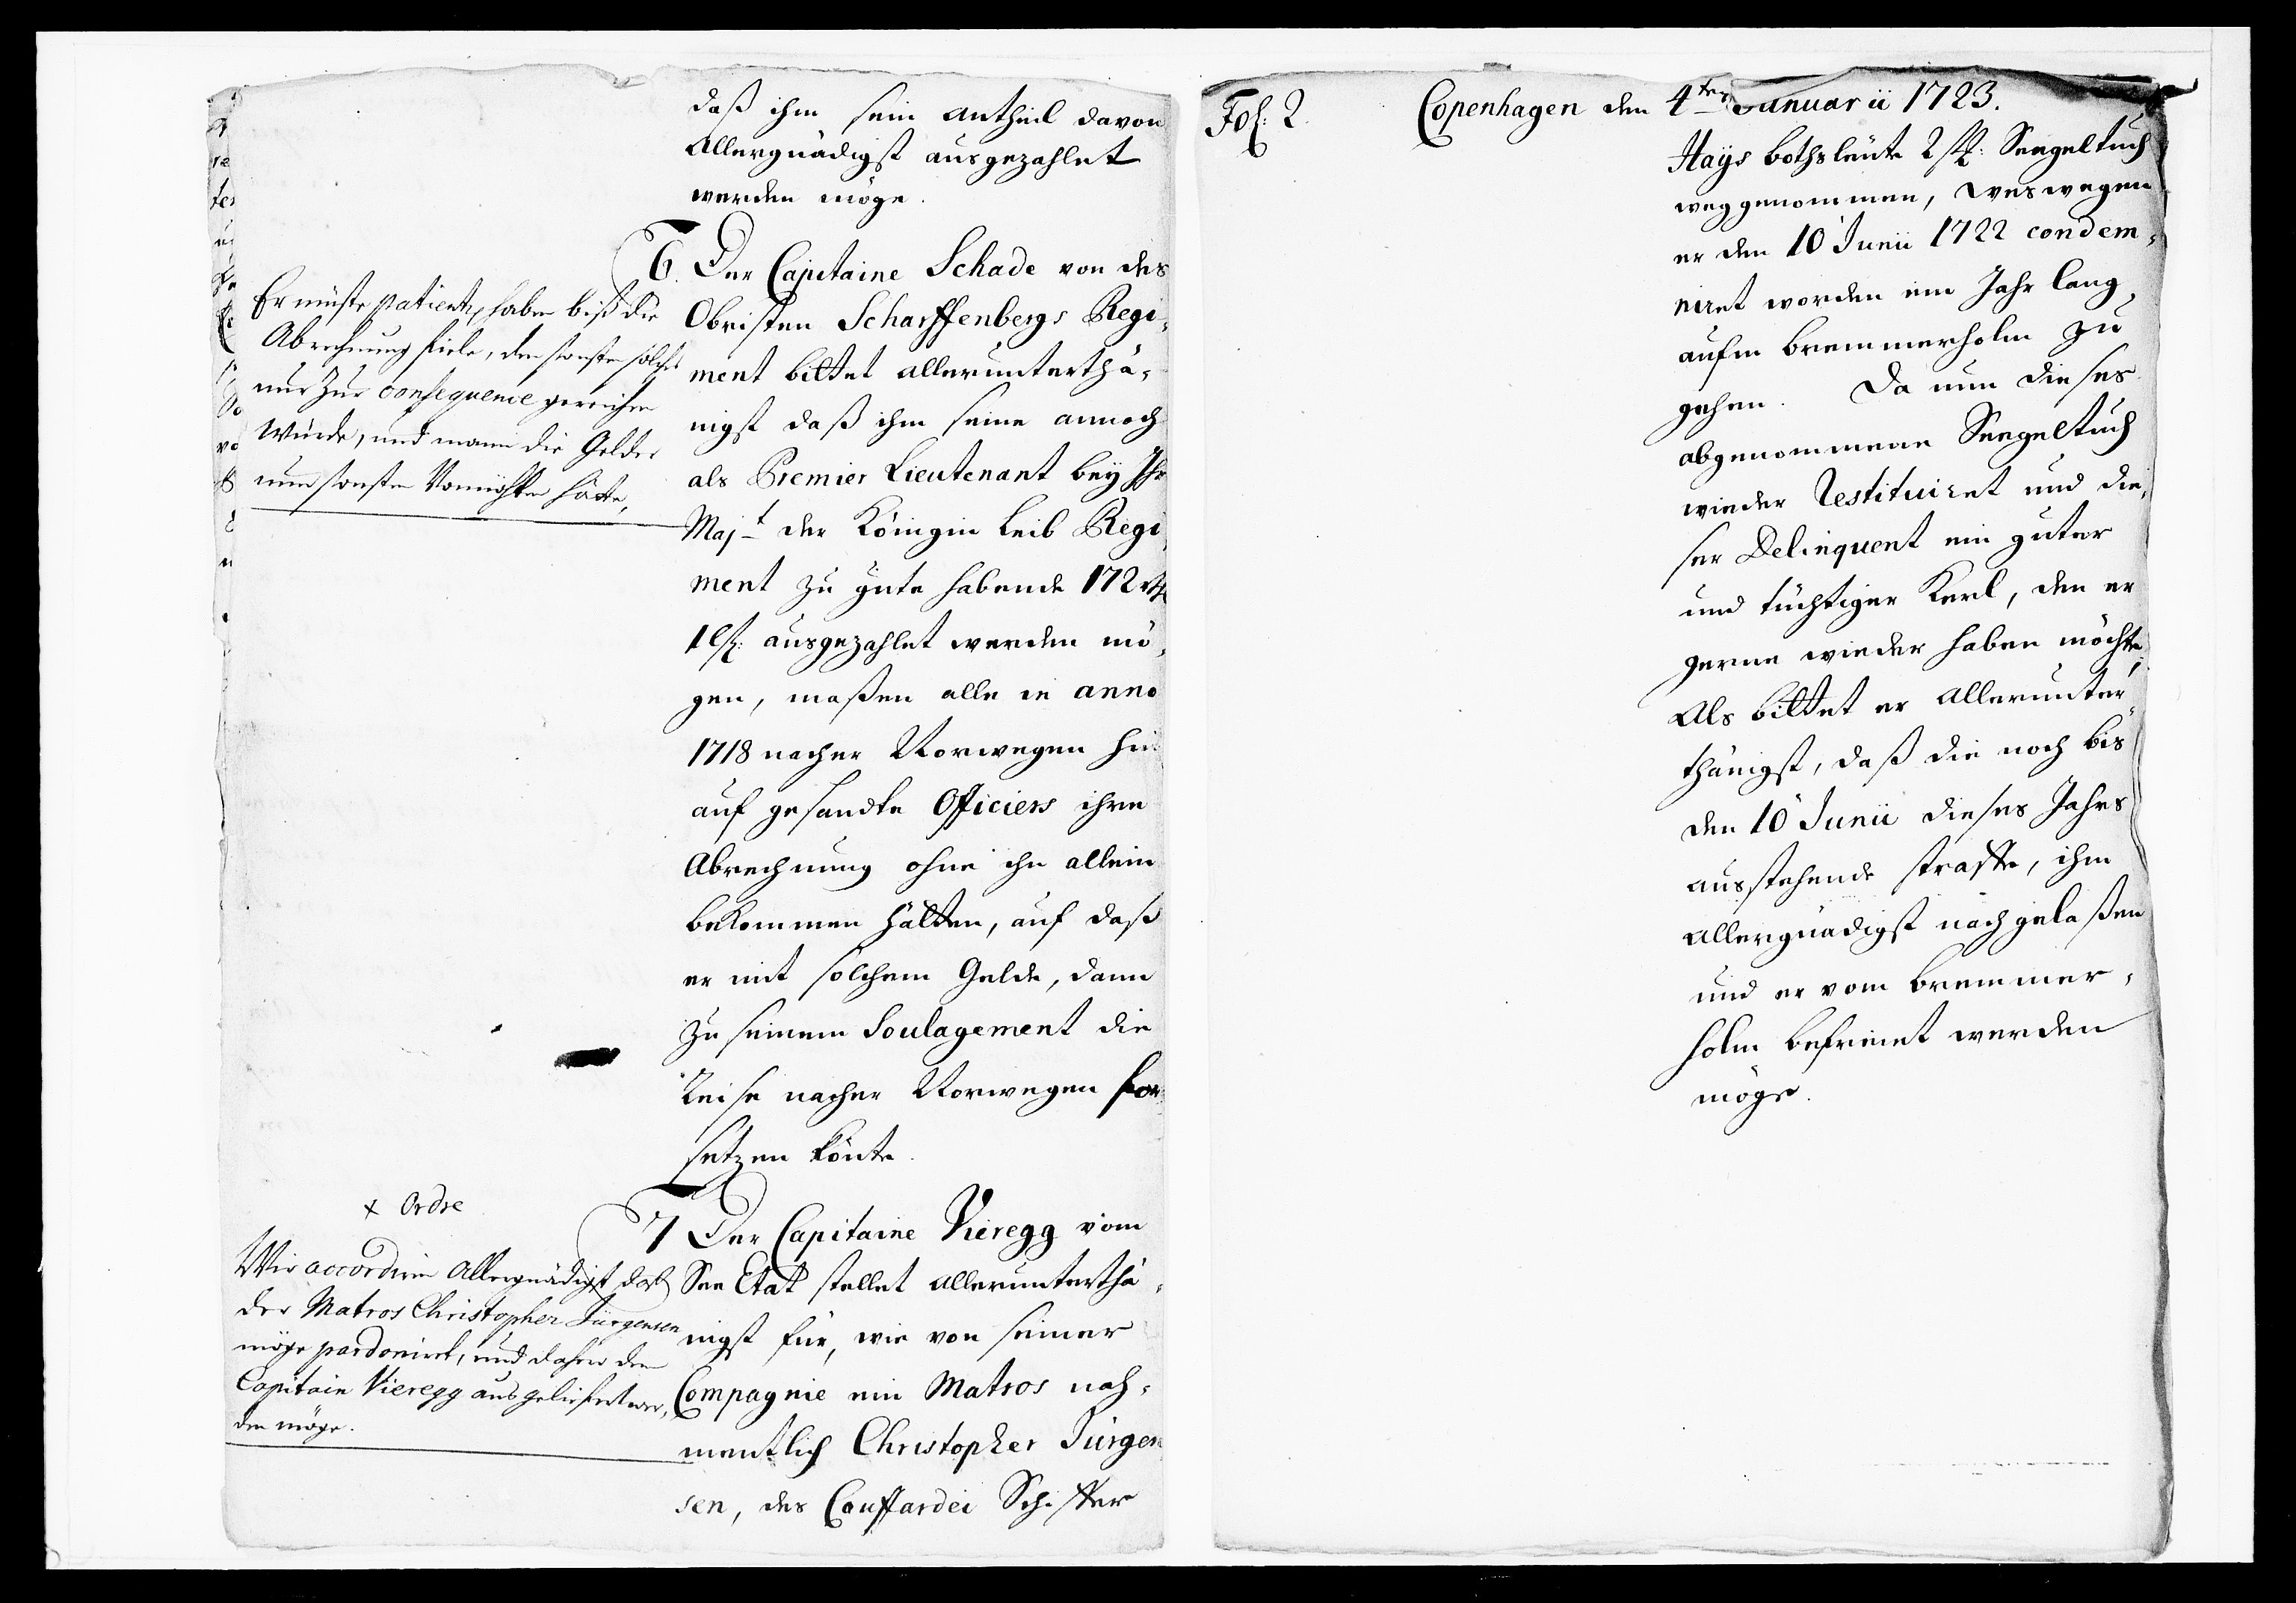 daß ihm sein Antheil davon
Allergnädigst ausgezahlet
werden möge.
6. Der Capitaine Schade von des
Obristen Scharffenbergs Regi-
ment bittet allerunterthä-
nigst daß ihm seine annoch
als Premier Lieutenant bey Ihr
Majt der Königin Leib Regi
ment zu gute habende 172 Rth
1 ß: ausgezahlet werden mö-
gen, maßen alle in anno
1718 nacher Norwegen hin
auf gesandte Officiers ihre
Abrechnung ohne ihn allein
bekommen hätten, auf daß
er mit solchem Gelde, dann
zu seinem Soulagement die
Reise nacher Norwegen for
setzen könte.
Er müste patientz haben biß die
Abrechnung fiele, den sonsten solches
nur zur consequence gereichen
würde, und mann die Gelder
nun sonsten Vonnöhten hätte,
7 Der Capitaine Vieregg vom
See Etat stellet allerunterthä-
nigst für, wie von seiner
Compagnie ein Matros nah-
mentlich Christopher Jürgen
sen, des Couffardei Schiffer
x Ordre
Wir accordiren Allergnädigst daß
der Matros Christopher Jürgensen
möge pardonirt, und daher dem
Capitain Vieregg ausgeliefert wer-
den möge.
Fol: 2.
Copenhagen den 4ten Januarii 1723.
Hays bothsleute 2 st: Seegeltuch
weggenommen, weswegen
er den 10 Junii 1722 condem-
niret worden ein Jahr lang
aufm Bremmerholm zu
gehen. Da nun dieses
abgenommene Seegeltuch
wieder Restituiret und die-
ser Delinquent ein guter
und tüchtiger Kerl, den er
gerne wieder haben möchte;
Als bittet er allerunter-
thänigst, daß die noch bis
den 10 Junii dieses Jahres
ausstehende straffe, ihm
Allergnädigst nachgelaßen
und er vom Bremmer-
holm befreiet werden
möge.